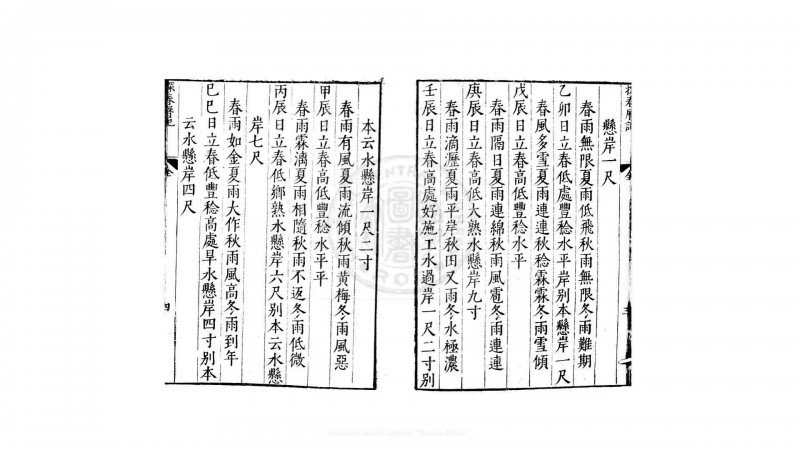 懸岸一尺
春雨無限夏雨低飛秋雨無限冬雨難期
乙卯日立春低處豐稔水平岸別本懸岸一尺
春風多雪夏雨連連秋稔霖霖冬雨雪傾
戊辰日立春高低豐稔水平
春雨隔日夏雨連綿秋雨風雹冬雨連連
庚辰日立春高低大熟水懸岸九寸
春雨滴瀝夏雨平岸秋田又雨冬水極濃
壬辰日立春高處好施工水過岸一尺二寸別
本云水懸岸一尺二寸
春雨有風夏雨流傾秋雨黄梅冬雨風惡
甲辰日立春高低豐稔水平平
春雨霖漓夏雨相隨秋雨不返冬雨低微
丙辰日立春低鄉熟水懸岸六尺別本云水懸
岸七尺
春雨如金夏雨大作秋雨風高冬雨到年
巳巳日立春低豐稔高處旱水懸岸四寸別本
云水懸岸四尺
探春曆記
四